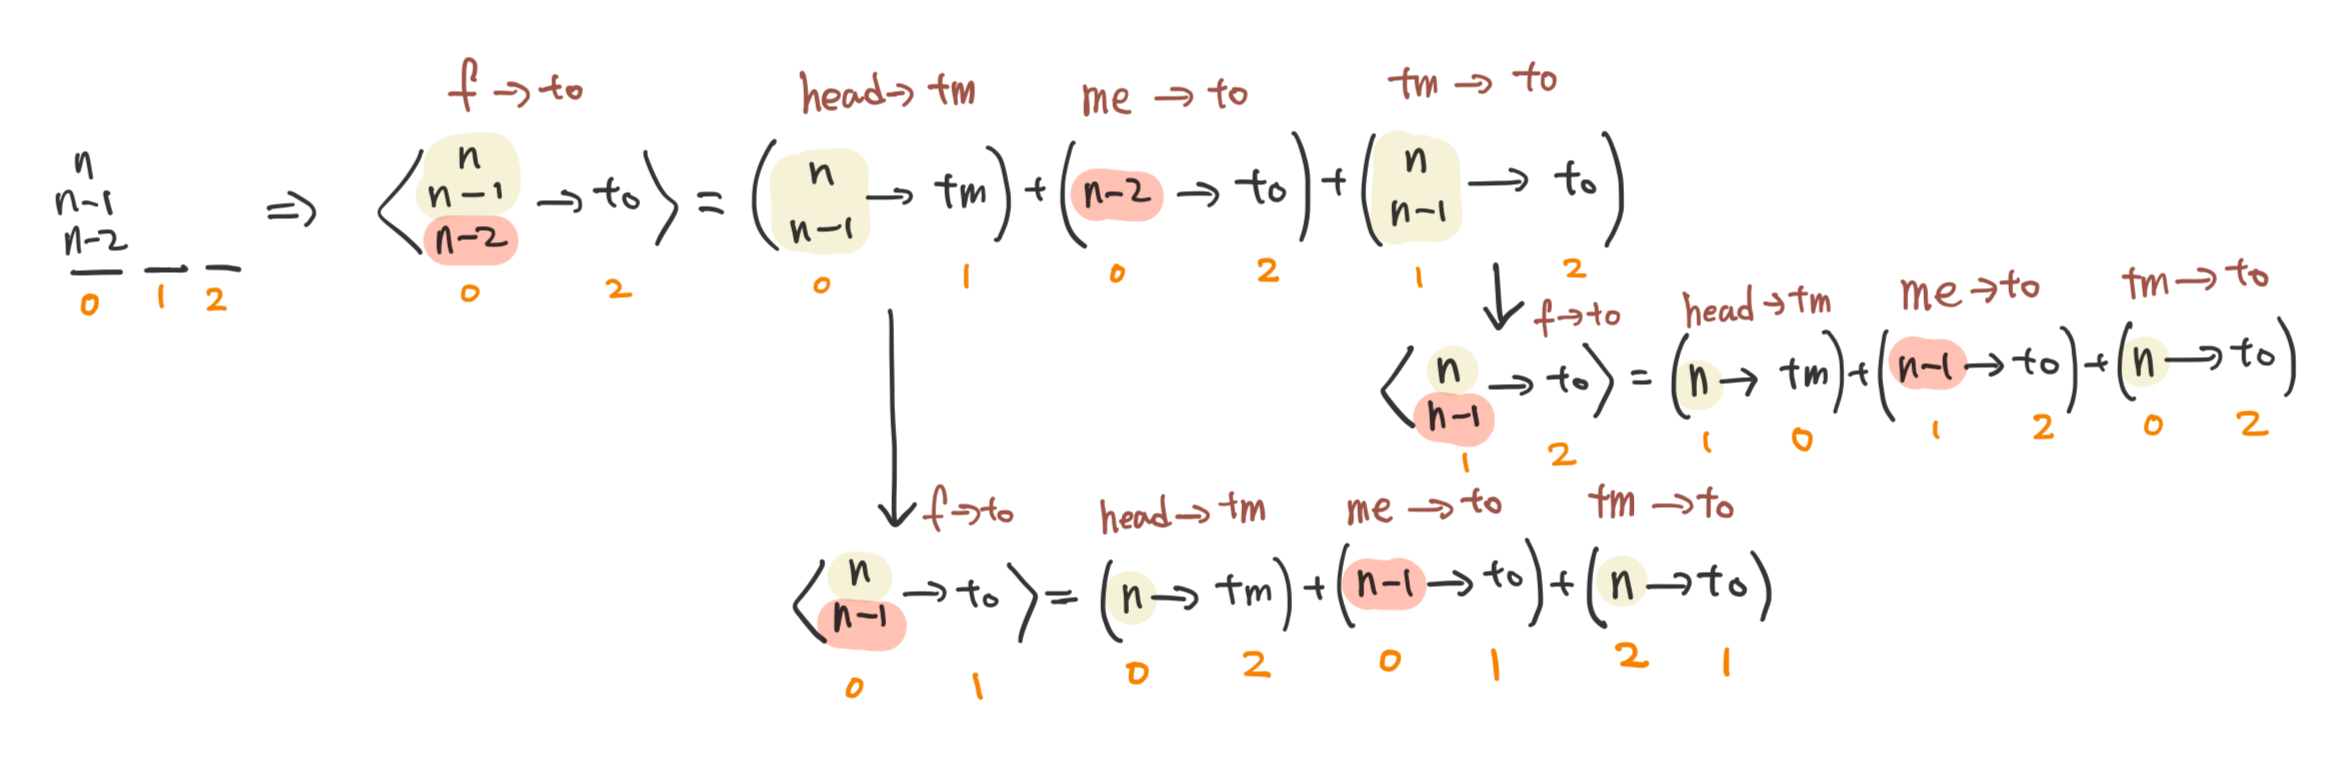 f → to head → tm me → to tm → to
n
n-1
n-2
0 1 2
⇒ ⟨ n n-1 n-2 → to ⟩ = ( n n-1 → tm ) + ( n-2 → to ) + ( n n-1 → to )
0 2 0 1 0 2 1 2
f → to head → tm me → to tm → to
⟨ n n-1 → to ⟩ = ( n → tm ) + ( n-1 → to ) + ( n → to )
1 2 1 0 1 2 0 2
f → to head → tm me → to tm → to
⟨ n n-1 → to ⟩ = ( n → tm ) + ( n-1 → to ) + ( n → to )
0 1 0 2 0 1 2 1